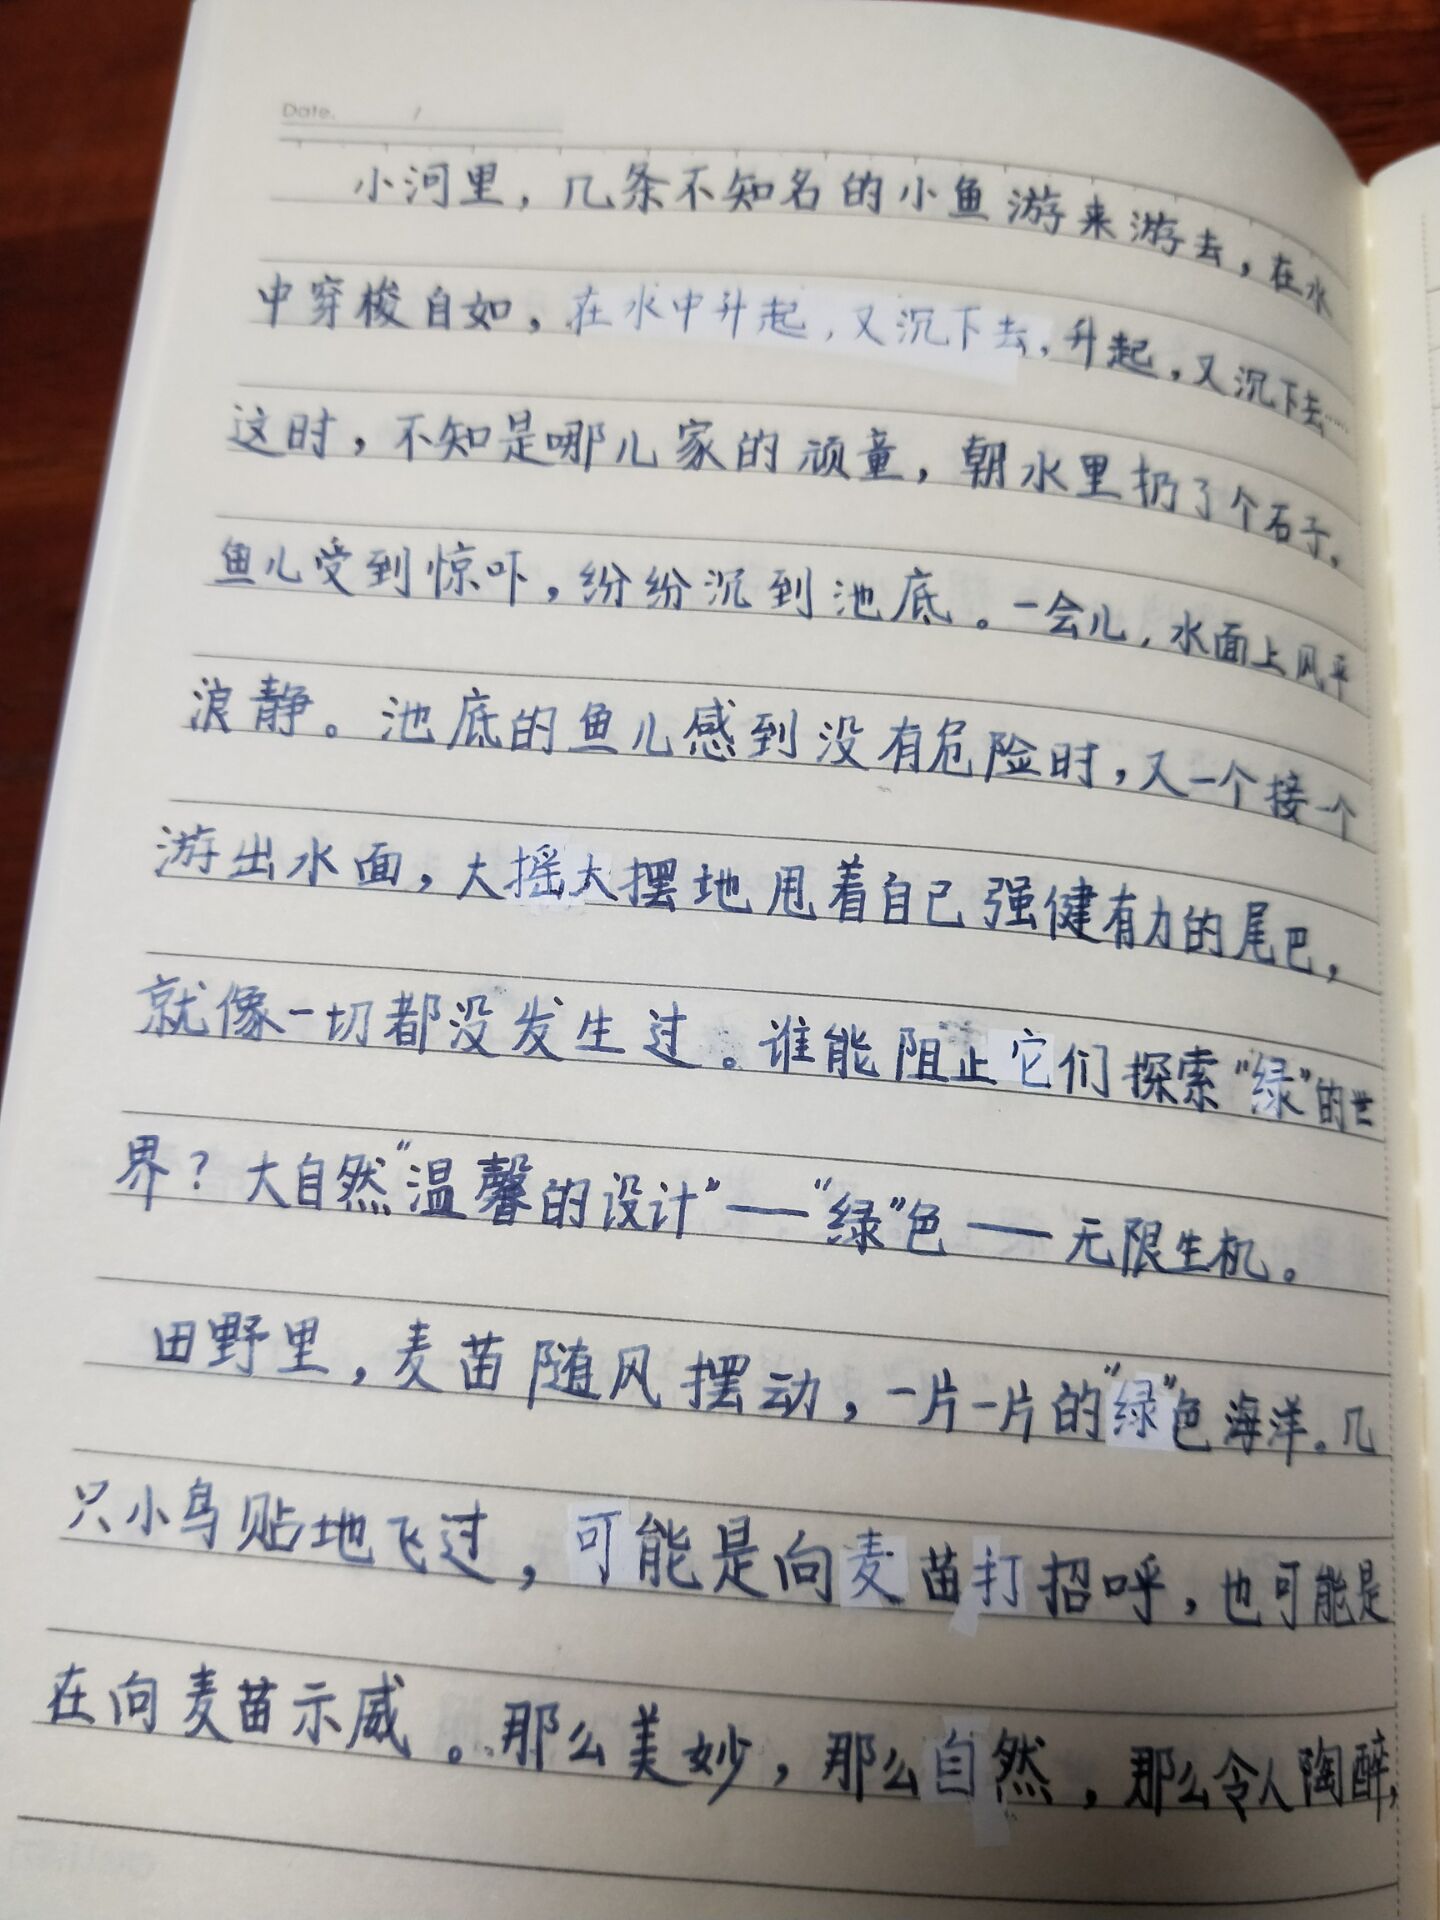 Date. /
小河里，几条不知名的小鱼游来游去，在水
中穿梭自如，在水中升起，又沉下去，升起，又沉下去……
这时，不知是哪儿家的顽童，朝水里扔了个石子，
鱼儿受到惊吓，纷纷沉到池底。一会儿，水面上风平
浪静。池底的鱼儿感到没有危险时，又一个接一个
游出水面，大摇大摆地甩着自己强健有力的尾巴，
就像一切都没发生过。谁能阻止它们探索“绿”的世
界？大自然“温馨的设计”——“绿”色——无限生机。
田野里，麦苗随风摆动，一片一片的“绿”色海洋。几
只小鸟贴地飞过，可能是向麦苗打招呼，也可能是
在向麦苗示威。那么美妙，那么自然，那么令人陶醉，